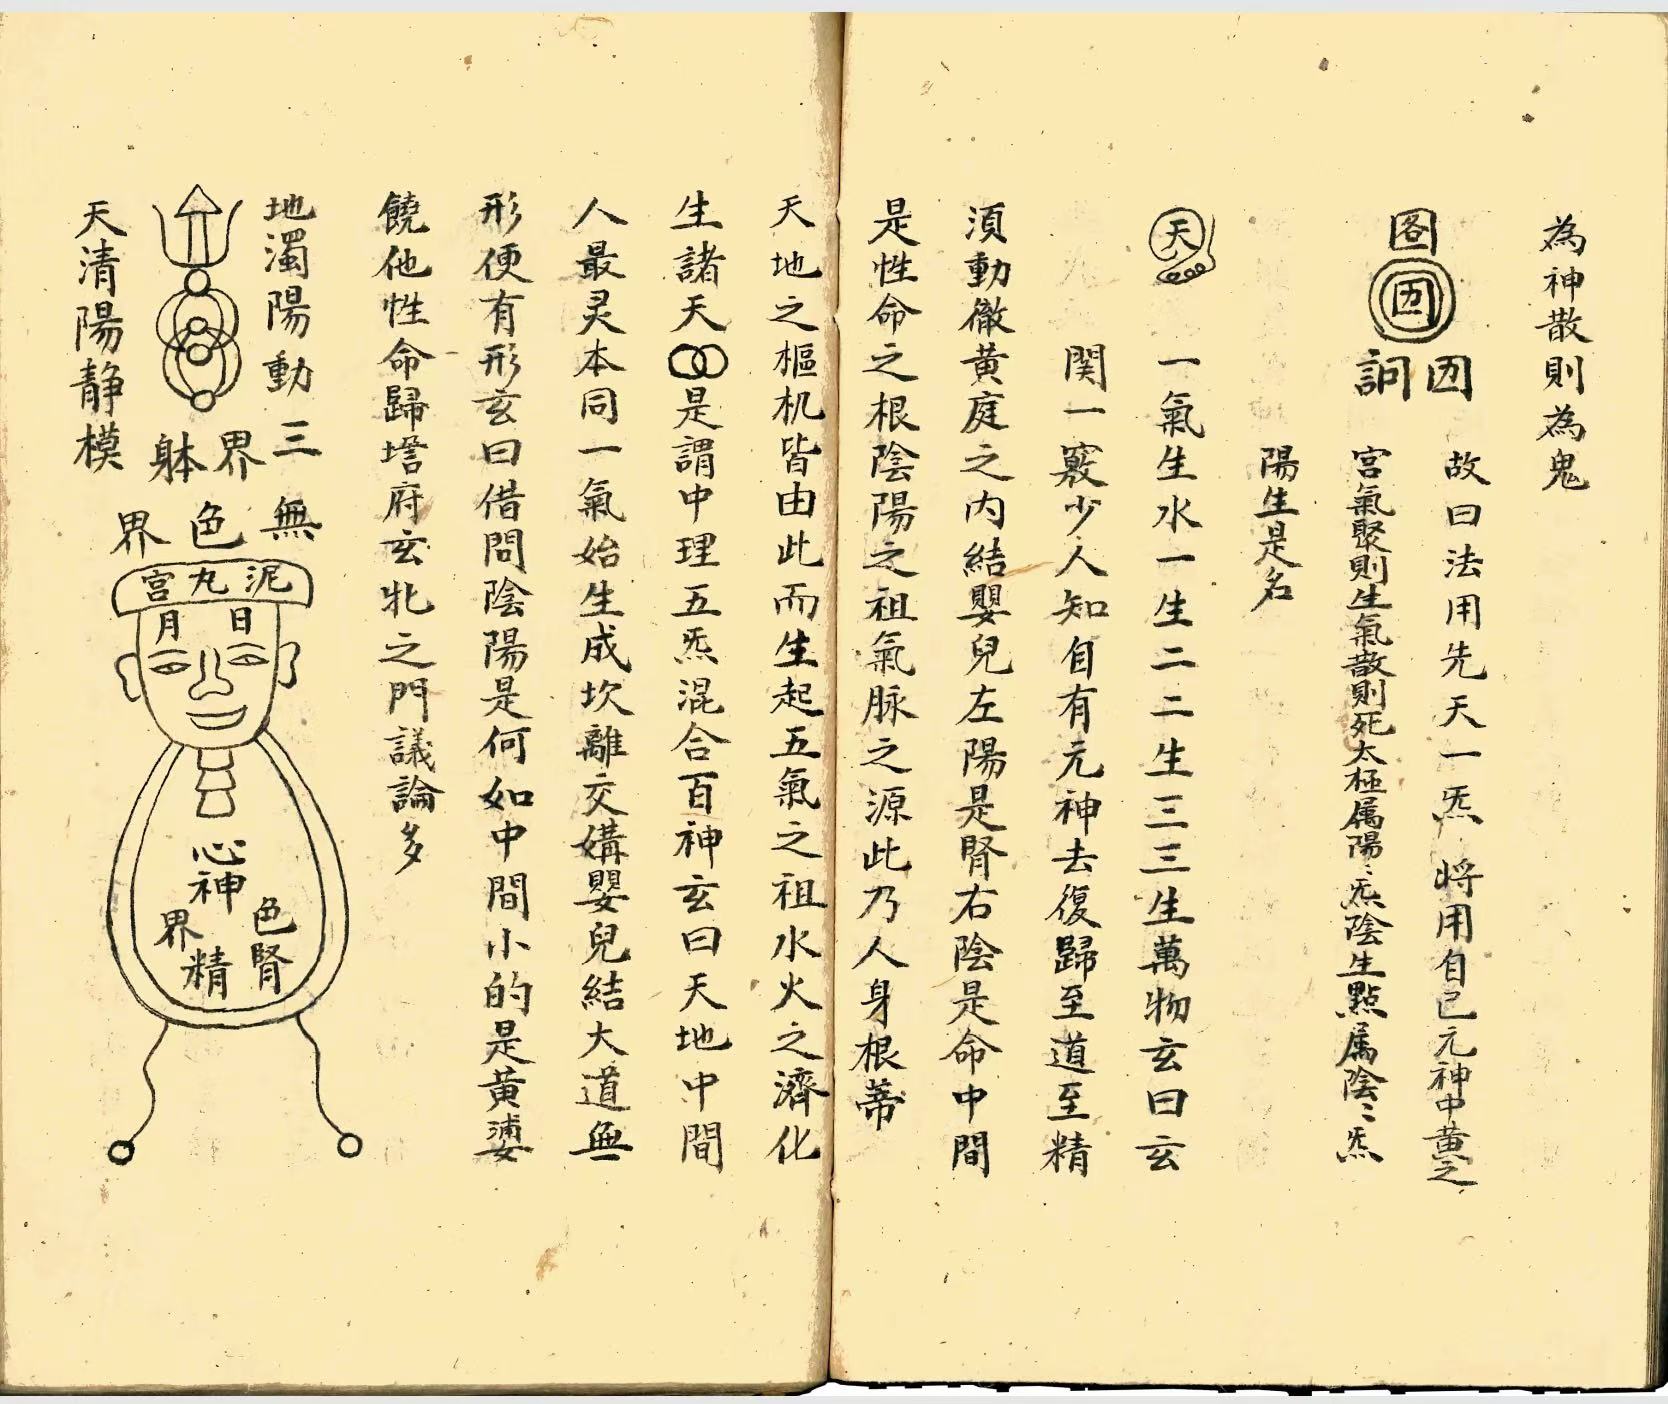 為神散則為鬼
故曰法用先天一炁　将用自己元神中黄之
宫氣聚則生氣散則死太極属陽〻炁陰生點属陰〻炁
陽生是名
天
一氣生水一生二二生三三生萬物玄曰玄
関一竅少人知自有元神去復歸至道至精
須動徹黄庭之内結嬰兒左陽是腎右陰是命中間
是性命之根陰陽之祖氣脉之源此乃人身根蒂
天地之樞机皆由此而生起五氣之祖水火之濟化
生諸天是謂中理五炁混合百神玄曰天地中間
人最灵本同一氣始生成坎離交媾嬰兒結大道無
形便有形玄曰借問陰陽是何如中間小的是黄婆
饒他性命歸府玄牝之門議論多
地濁陽動三
界
躰
天清陽静模
無色界
泥丸宮
日
月
心神
色腎
界
精